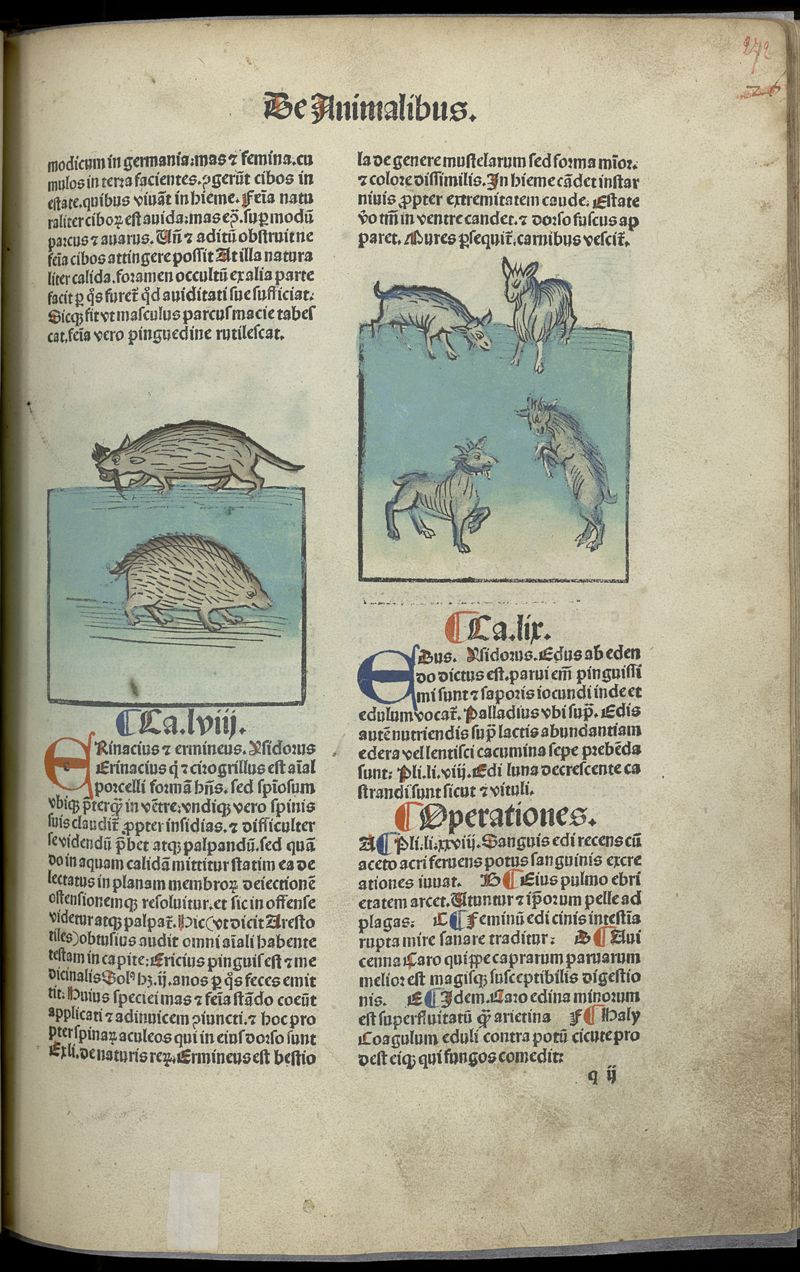 272
26
De Animalibus.
modicum in germania:mas ⁊ femina.cu
mulos in terra facientes.ꝯgerūt cibos in
estate.quibus viuāt in hieme. Feīa natu
raliter ciboꝝ est auida:mas eꝯ̄.suꝑ modū
parcus ⁊ auarus. Uñ ⁊ aditū obstruit ne
feīa cibos attingere possit At illa natura
liter calida.foramen occultū ex alia parte
facit ꝑ q̄s furet᷑ qd̄ auiditati sue sufficiat:
Sicqꝫ fit vt masculus parcus macie tabes
cat.feīa vero pinguedine rutilescat.
¶Ca.lviij.
ERinacius ⁊ ermineus. Ysidorus
Erinacius q̄ ⁊ cirogrillus est aīal
porcelli formā hñs. sed spīosum
vbiqꝫ p̄terqꝫ̄ in vētre:vndiqꝫ vero spinis
suis claudit᷑ ꝓpter insidias. ⁊ difficulter
se videndū p̄bet atqꝫ palpandū.sed quā
do in aquam calidā mittitur statim ea de
lectatus in planam membroꝝ deiectionē
ostensionemqꝫ resoluitur.et sic in offense
videtur atqꝫ palpat᷑. Hic(vt dicit Aresto
tiles)obtusius audit omni aīali habente
testam in capite:Ericius pinguis est ⁊ me
dicinalis Solꝰ hꝫ.ij.anos ꝑ q̄s feces emit
tit: Huius speciei mas ⁊ feīa stādo coeūt
applicati ⁊ adinuicem ꝯiuncti.⁊ hoc pro
pter spinaꝝ aculeos qui in eius dorso sunt
Ex li.de naturis reꝝ. Ermineus est bestio
la de genere mustelarum sed forma mīor.
⁊ colore dissimilis. In hieme cādet instar
niuis ꝓpter extremitatem caude. Estate
v̄o tm̄ in ventre candet.⁊ dorso fuscus ap
paret. Mures ꝑsequit᷑.carnibus vescit᷑.
¶Ca.lix.
EDus. Ysidorus.Edus ab eden
do dictus est.parui em̄ pinguissi
mi sunt ⁊ saporis iocundi inde et
edulum vocat᷑. Palladius vbi suꝑ. Edis
autē nutriendis suꝑ lactis abundantiam
edera vel lentisci cacumina sepe prebēda
sunt: Pli.li.viij.Edi luna decrescente ca
strandi sunt sicut ⁊ vituli.
¶Operationes.
A¶Pli.li.xxviij.Sanguis edi recens cū
aceto acri feruens potus sanguinis excre
ationes iuuat. B¶Eius pulmo ebri
etatem arcet.Utuntur ⁊ ip̄orum pelle ad
plagas: C¶Feminū edi cinis intestīa
rupta mire sanare traditur: D¶Aui
cenna Caro quippe caprarum paruarum
melior est magisqꝫ susceptibilis digestio
nis. E¶Idem.Caro edina minorum
est superfluitatū qꝫ̄ arietina F¶Haly
Coagulum eduli contra potū cicute pro
dest eiqꝫ qui fungos comedit:
q ij